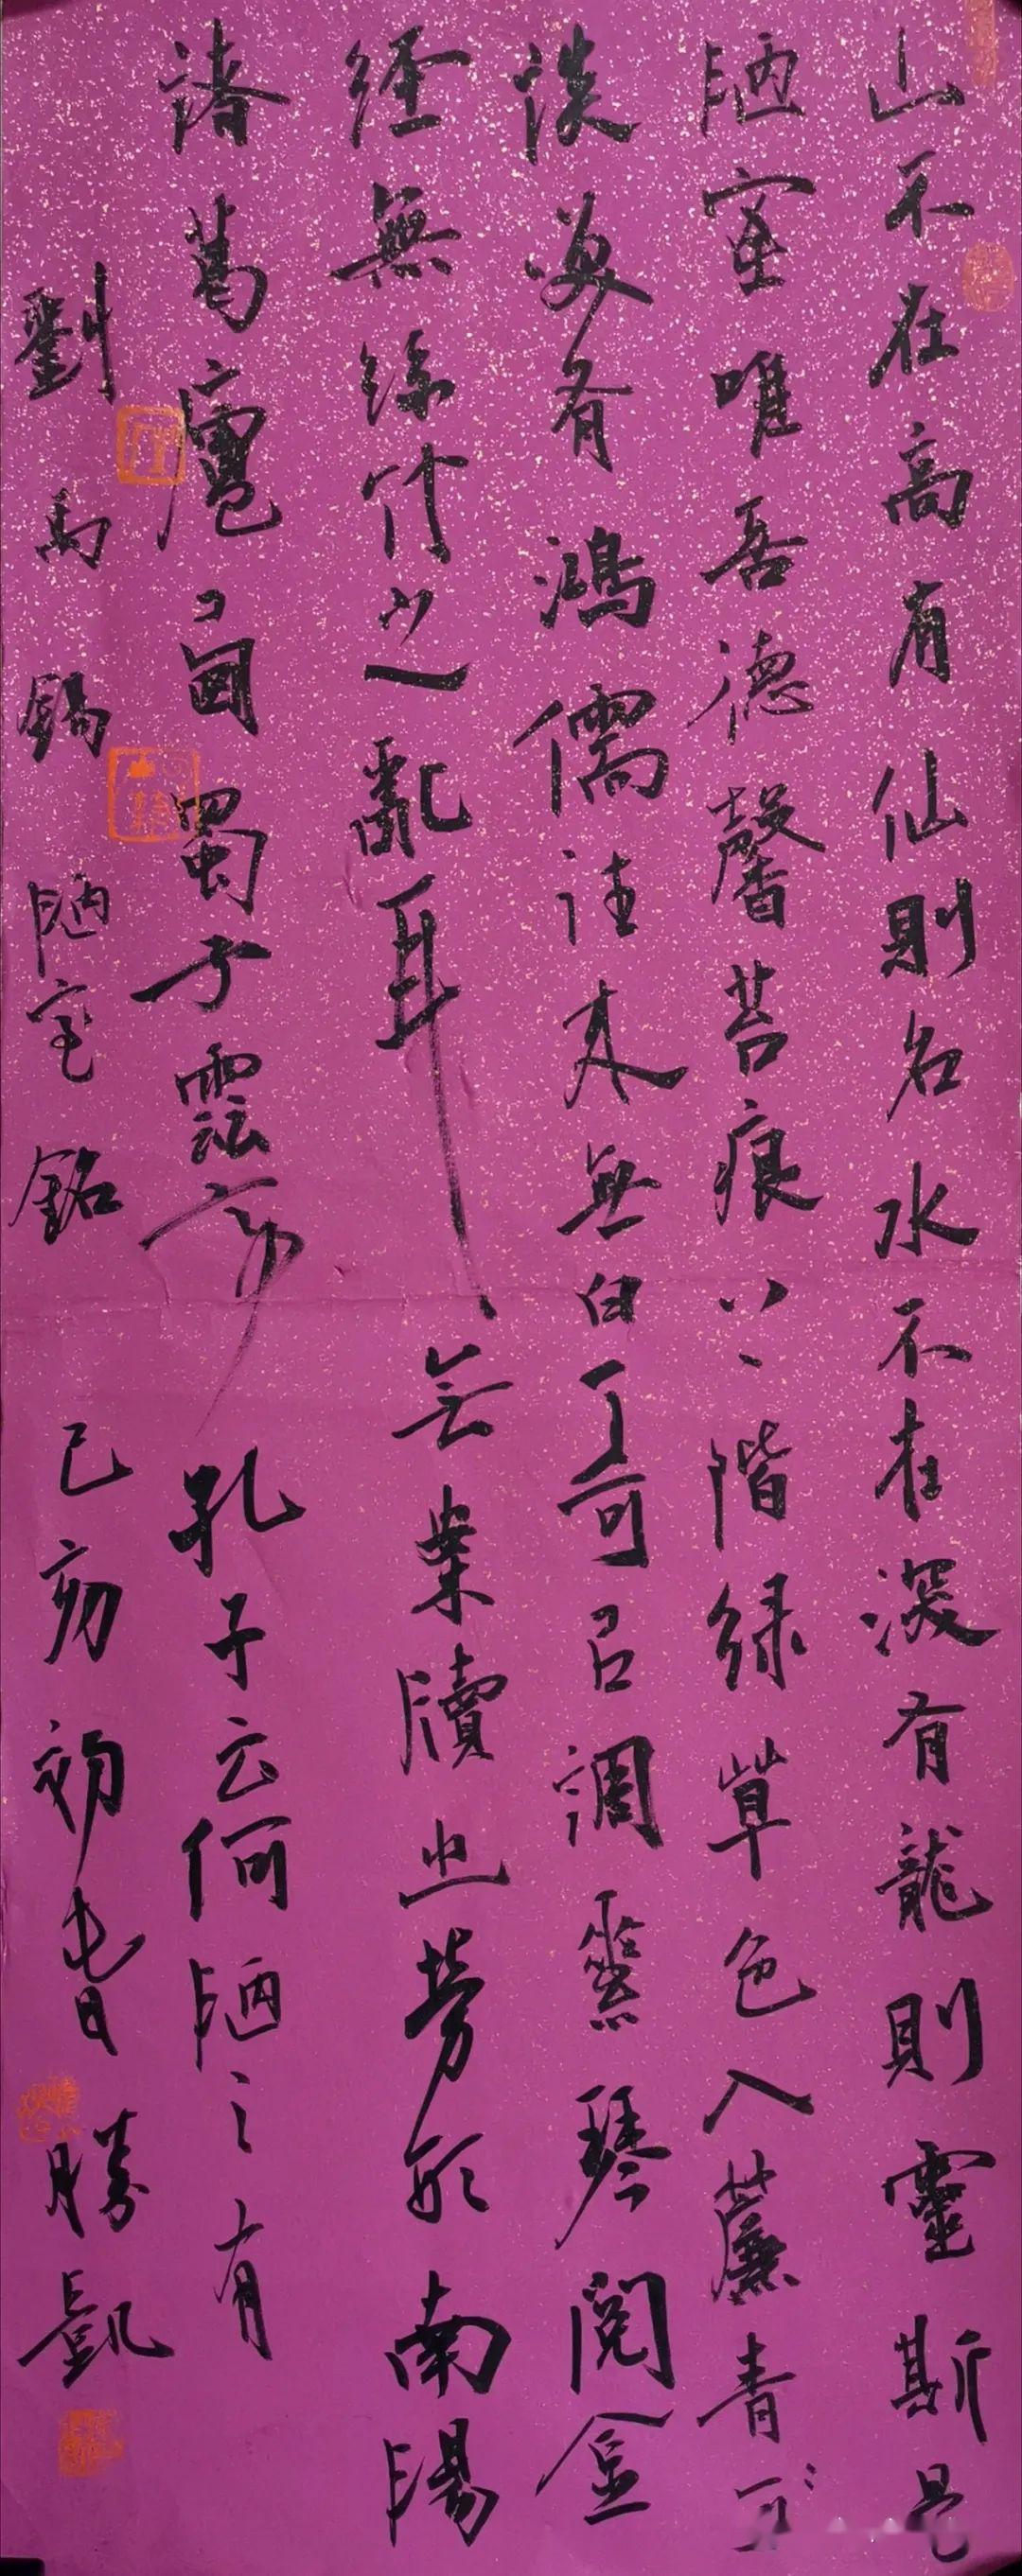 山不在高有仙則名水不在深有龍則靈斯是
陋室唯吾德馨苔痕上階绿草色入簾青可
談笑有鴻儒往来無白丁可召調素琴閱金
經無絲竹之亂耳無案牘也劳形南陽
諸葛廬西蜀子雲亭孔子云何陋之有
劉禹錫陋室銘 己亥初春日 勝凱